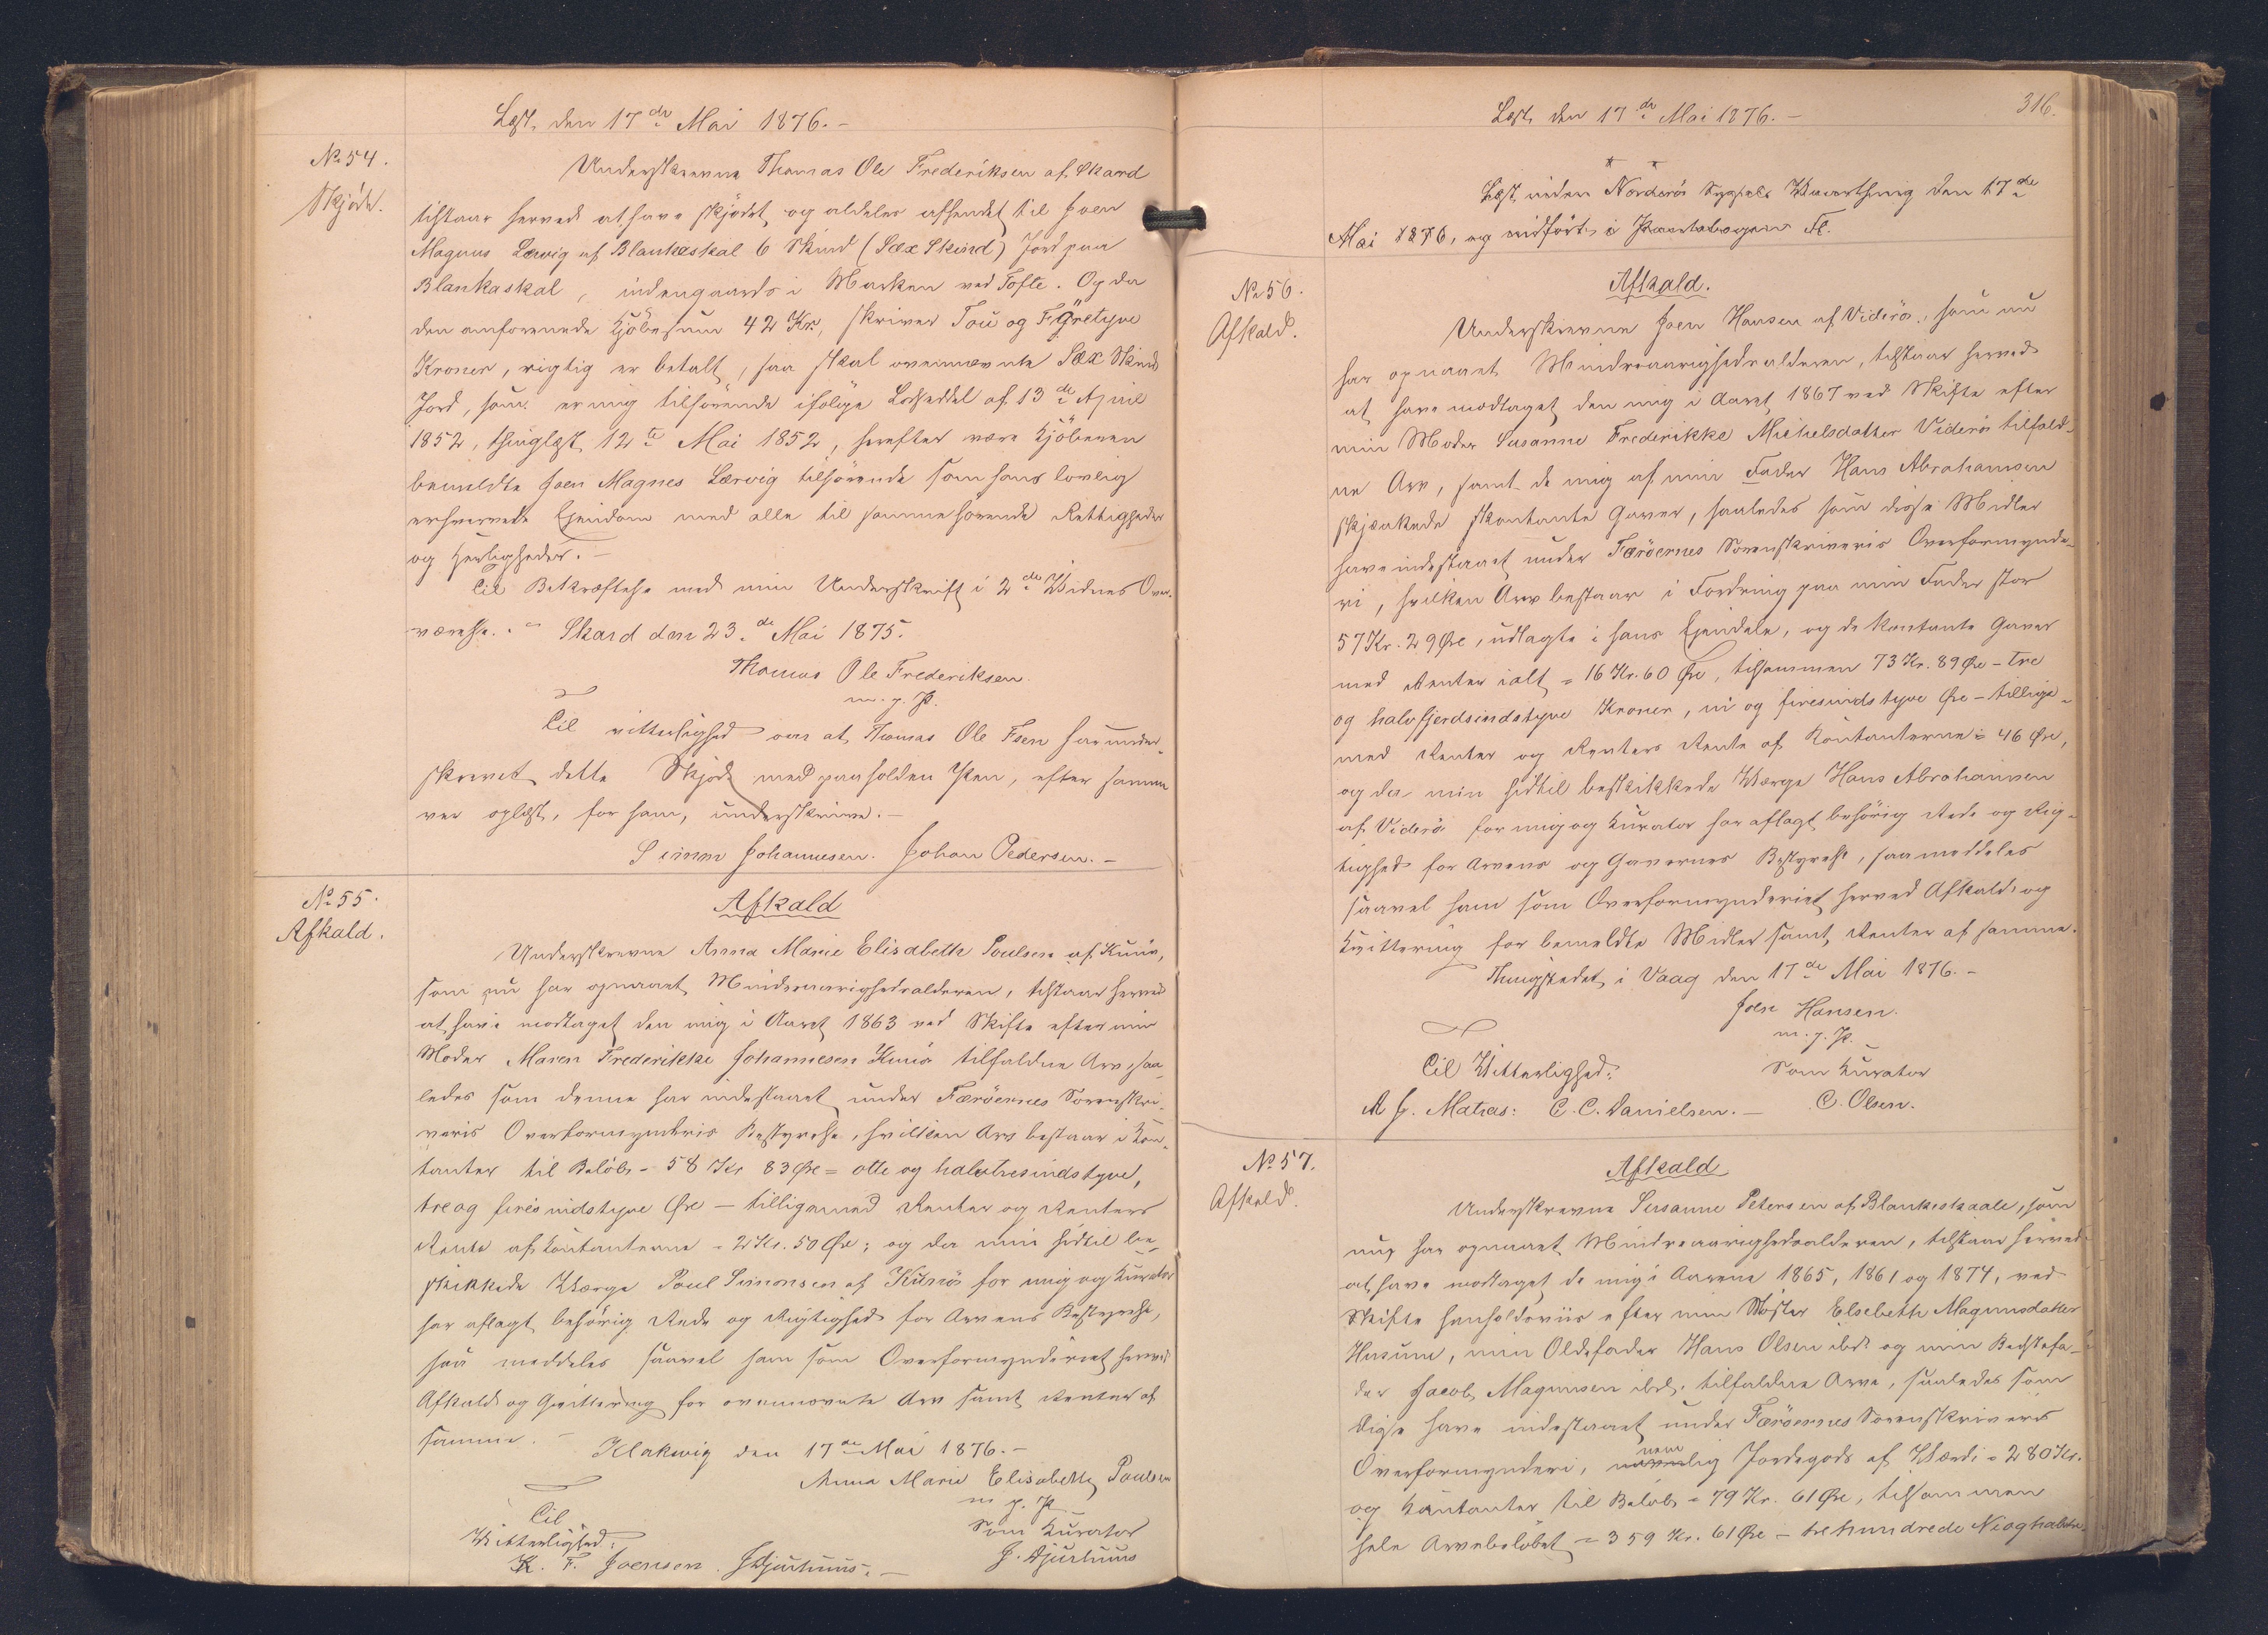 Læst den 17de Mai 1876.-
No 54.
Skjøde.
Underskrevne Thomas Ole Frederiksen af Skard
tilstaar herved at have skjødet og aldeles afhendet til Joen
Magnus Lervig af Blankeskal 6 Skind (Sex Skind) Jord paa
Blankaskal, indengaards i Marken ved Tofte. Og da
den omforenede Kjøbesum 42 Kr, skriver Tou og Fÿretyve
Kroner, rigtig er betalt, saa skal ovennævnte Sex Skind
Jord, som er mig tilhörende ifölge Lodseddel af 13de April
1852, thinglæst 12te Mai 1852, herefter være Kjöberen
bemeldte Joen Magnes Lærvig tilhörende som hans lovlig
erhvervede Ejendom med alle til samme hørende Rettigheder
og Herligheder.-
Til Bekræftelse med min Underskrift i 2de Vidnes Over-
værelse. - Skard den 23de Mai 1875.
Thomas Ole Frederiksen.
m. p. P.
Til vitterlighed om at Thomas Ole Fsen har under-
skrevet dette Skjöde med paaholden Pen, efter samme
var oplæst, for ham, underskrive.-
Simm Johannesen. Johan Pedersen.-
No 55.
Afkald.
Afkald
Underskrevne Anna Marie Elisabeth Poulsen af Kunö,
som nu har opnaaet Mindreaarighedsalderen, tilstaar herved
at have modtaget den mig i Aaret 1863 ved Skifte efter min
Moder Maren Frederikke Johannesen Kunö tilfaldne Arv, saa-
ledes som denne har indestaaet under Færöernes Sorenskri-
veris Overformynderis Bestyrelse, hvilken Arv bestaar i Kon-
tanter til Beløb - 58 Kr 83 Øre = otte og halvtresindstyve,
tre og firesindstyve Øre - tilligemed Renter og Renters
Rente af Kontanterne = 2 Kr. 50 Øre; og da min hidtil be-
skikkede Værge Poul Simonsen af Kunö for mig og Kurator
har aflagt behörig Rede og Rigtighed for Arvens Bestyrelse,
saa meddeles saavel ham som Overformynderiet herved
Afkald og Qvittering for ovennævnte Arv samt Renter af
samme. - Klakvig den 17de Mai 1876.-
Anna Marie Elisabeth Poulsen
m. p. P.
Til
Vitterlighed:
Som Kurator
K. F. Joensen. J Djurhuus.- J. Djurhuus
316.
Læst den 17de Mai 1876.-
Læst inden Norderö Syssels Vaarthing den 17de
Mai 1876, og indfört i Panteboger Fl.
No 56.
Afkald.
Afkald.
Underskrevne Joen Hansen af Viderö, som nu
har opnaaet Mindreaarighedsalderen, tilstaar herved
at have modtaget den mig i Aaret 1867 ved Skifte efter
min Moder Susanne Frederikke Michelsdatter Viderö tilfald-
ne Arv, samt de mig af min Fader Hans Abrahamsen
skjænkede kontante Gaver, saaledes som disse Midler
have indestaaet under Færöernes Sorenskriveris Overformynde-
ri, hvilken Arv bestaar i Fordring paa min Fader stor
57 Kr. 29 Øre, udlagte i hans Ejendele, og de kontante Gaver
med Renter ialt = 16 Kr. 60 Øre, tilsammen 73 Kr. 89 Øre - tre
og halvfjerdsindstyve Kroner, ni og firesindstyve Øre - tillige-
med Renter og Renters Rente af Kontanterne = 46 Øre,
og da min hidtil beskikkede Værge Hans Abrahamsen
af Viderö for mig og Kurator har aflagt behörig Rede og Rig-
tighed for Arvens og Gavernes Bestyrelse, saa meddeles
saavel ham som Overformynderiet herved Afkald og
Kvittering for bemeldte Midler samt Renter af samme.
Thingstedet i Vaag den 17de Mai 1876.-
Joen Hansen.
m. p. P.
Til Vitterlighed: Som Kurator
Matras: C. C. Danielsen.- C. Olsen.
No 57.
Afkald.
Afkald
Underskrevne Susanne Petersen af Blankeskaale, som
nu har opnaaet Mindreaarighedsalderen, tilstaar herved
at have modtaget de mig i Aarene 1865, 1861 og 1874, ved
Skifte henholdsviis efter min Søster Elsebeth Magnusdatter
Husum, min Oldefader Hans Olsen ibd. og min Bedstefa-
der Jacob Magnusen ibd. tilfaldne Arve, saaledes som
disse have indestaaet under Færöernes Sorenskriveris
Overformynderi, nemlig Jordegods af Værdi = 280 Kr.
og Kontanter til Beløb = 79 Kr. 61 Øre, tilsammen
hele Arvebeløbet = 359 Kr. 61 Øre - tre hundrede Nioghalvtre-